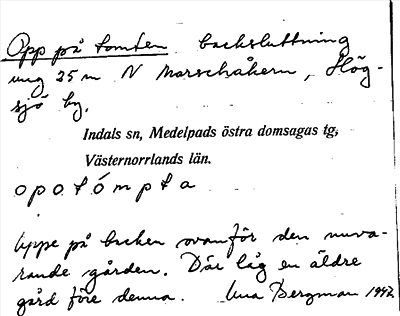 Opp på tomten backsluttning
ung 25 m N Marschåkern, Hög-
sjö by.
Indals sn, Medelpads östra domsagas tg,
Västernorrlands län.
opotómpta
Uppe på backen ovanför den nuva-
rande gården. Där låg en äldre
gård före denna. Una Bergman 1942